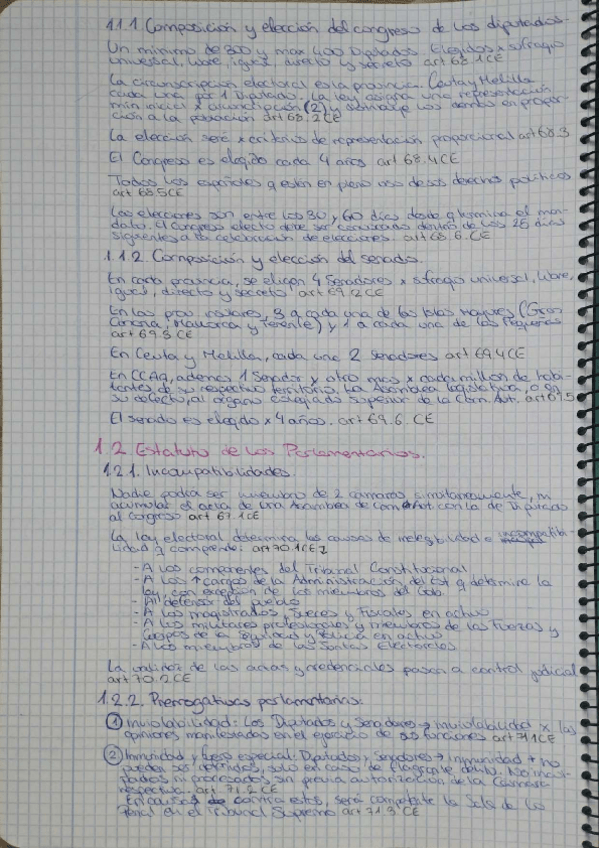 1.1.1 Composición y elección del congreso de los diputados.
Un mínimo de 300 y max 400 Diputados. Elegidos x sufragio
universal, libre, igual, directo y secreto art 68.1CE
La circunscripción electoral es la provincia. Ceuta y Melilla
cada una x 1 Diputado. La ley asigna una representación
min inicial x circunscripción (2) y distribuye los demás en propor-
ción a la población art 68.2 CE
La elección será x criterios de representación proporcional art 68.3
El Congreso es elegido cada 4 años art 68.4CE
Todos los españoles q estén en pleno uso de sus derechos políticos
art 68.5CE
Las elecciones son entre los 30 y 60 días desde q termina el man-
dato. El Congreso electo debe ser convocado dentro de los 25 días
siguientes a la celebración de elecciones. art 68.6.CE
1.1.2. Composición y elección del senado.
En cada provincia, se eligen 4 Senadores x sufragio universal, libre,
igual, directo y secreto art 69.2CE
En las prov. insulares, 3 a cada una de las Islas mayores (Gran
Canaria, Mallorca y Tenerife) y 1 a cada una de las pequeñas
art 69.3 CE
En Ceuta y Melilla, cada una 2 senadores art 69.4CE
En CCAA, además 1 Senador y otro más x cada millón de habi-
tantes de su respectivo territorio. La Asamblea legislativa, o en
su defecto, al órgano colegiado superior de la Com. Aut. art 69.5
El senado es elegido x 4 años. art 69.6. CE
1.2 Estatuto de los Parlamentarios.
1.2.1. Incompatibilidades.
Nadie podrá ser miembro de 2 cámaras simultáneamente, ni
acumular el acta de una Asamblea de Com Aut. con la de Diputado
al Congreso art 67.1CE
La ley electoral determina las causas de inelegibilidad e incompatibi-
lidad q comprende: art 70.1CE
- A los componentes del Tribunal Constitucional
- A los ↑ cargos de la Administración del Est q determine la
ley, con excepción de los miembros del Gob.
- Al defensor del pueblo
- A los magistrados, Jueces y Fiscales en activo
- A los militares profesionales y miembros de las Fuerzas y
Cuerpos de la Seguridad y Policía en activo
- A los miembros de las Juntas Electorales
La validez de las actas y credenciales pasan a control judicial
art 70.2CE
1.2.2. Prerrogativas parlamentarias.
① Inviolabilidad: Los Diputados y Senadores → inviolabilidad x las
opiniones manifestadas en el ejercicio de sus funciones art 71.1CE
② Inmunidad y fuero especial. Diputados y Senadores → inmunidad + no
pueden ser detenidos, solo en caso de flagrante delito. No incul-
pados ni procesados sin previa autorización de la Cámara
respectiva. art 71.2 CE
En causas contra estos, será competente la Sala de lo
Penal en el Tribunal Supremo art 71.3 CE